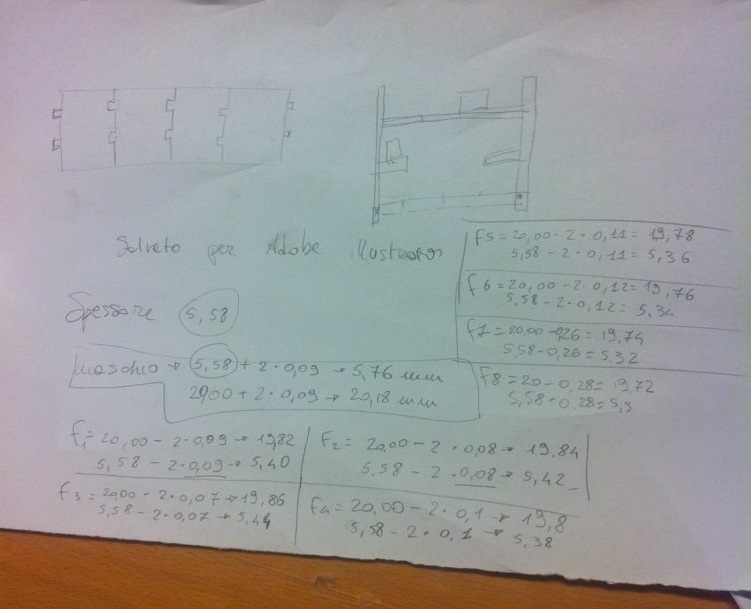 Salvato per Adobe Illustrator
Spessore 5,58
maschio → 5,58 + 2·0,09 → 5,76 mm
20,00 + 2·0,09 → 20,18 mm
f1 = 20,00 - 2·0,09 → 19,82
5,58 - 2·0,09 → 5,40
f2 = 20,00 - 2·0,08 → 19,84
5,58 - 2·0,08 → 5,42
f3 = 20,00 - 2·0,07 → 19,86
5,58 - 2·0,07 → 5,44
f4 = 20,00 - 2·0,1 → 19,8
5,58 - 2·0,1 → 5,38
f5 = 20,00 - 2·0,11 = 19,78
5,58 - 2·0,11 = 5,36
f6 = 20,00 - 2·0,12 = 19,76
5,58 - 2·0,12 = 5,34
f7 = 20,00 - 0,26 = 19,74
5,58 - 0,26 = 5,32
f8 = 20 - 0,28 = 19,72
5,58 - 0,28 = 5,3